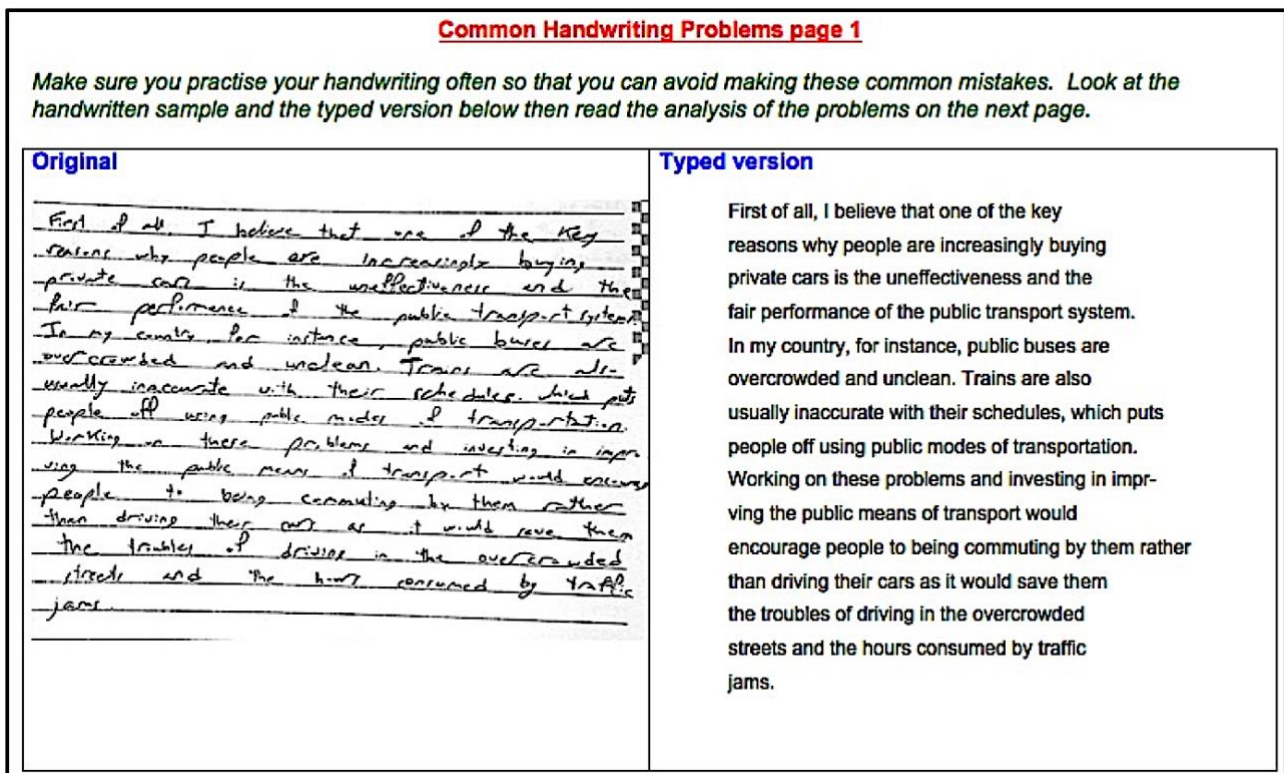 Common Handwriting Problems page 1
Make sure you practise your handwriting often so that you can avoid making these common mistakes. Look at the
handwritten sample and the typed version below then read the analysis of the problems on the next page.
Original
First of all, I believe that one of the key
reasons why people are increasingly buying
private cars is the uneffectiveness and the
fair performance of the public transport system.
In my country, for instance, public buses are
overcrowded and unclean. Trains are also
usually inaccurate with their schedules. which puts
people off using public modes of transportation.
Working on these problems and investing in impro
ving the public means of transport would encourage
people to being commuting by them rather
than driving their cars as it would save them
the troubles of driving in the overcrowded
streets and the hours consumed by traffic
jams.
Typed version
First of all, I believe that one of the key
reasons why people are increasingly buying
private cars is the uneffectiveness and the
fair performance of the public transport system.
In my country, for instance, public buses are
overcrowded and unclean. Trains are also
usually inaccurate with their schedules, which puts
people off using public modes of transportation.
Working on these problems and investing in impr-
ving the public means of transport would
encourage people to being commuting by them rather
than driving their cars as it would save them
the troubles of driving in the overcrowded
streets and the hours consumed by traffic
jams.